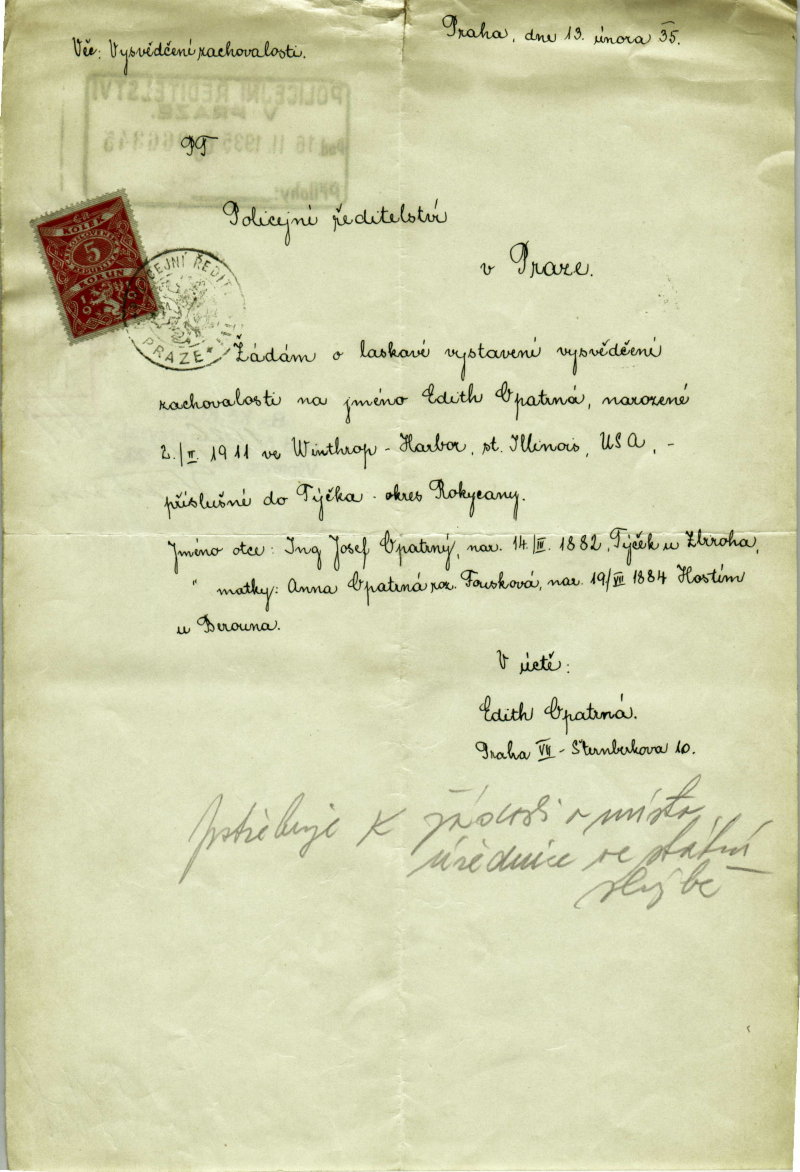 Praha, dne 13. února 35.
Věc: Vysvědčení zachovalosti.
POLICEJNÍ ŘEDITELSTVÍ
V PRAZE.
16 II 1935
Přílohy:
PT
Policejní ředitelství
v Praze.
KOLEK
5
KORUN
PRAZE
Žádám o laskavé vystavení vysvědčení
zachovalosti na jméno Edith Opatrná, narozené
2./II. 1911 ve Winthrop - Harbor, st. Illinois, USA, -
příslušné do Týčka - okres Rokycany.
Jméno otce: Ing Josef Opatrný, nar. 14./III. 1882, Týček u Zbiroha,
" matky: Anna Opatrná roz. Fousková, nar. 19/VII 1884 Hostím
u Berouna.
V úctě:
Edith Opatrná.
Praha VII - Šternberkova 10.
potřebuje k žádosti o místo
úřednice ve státní
službě